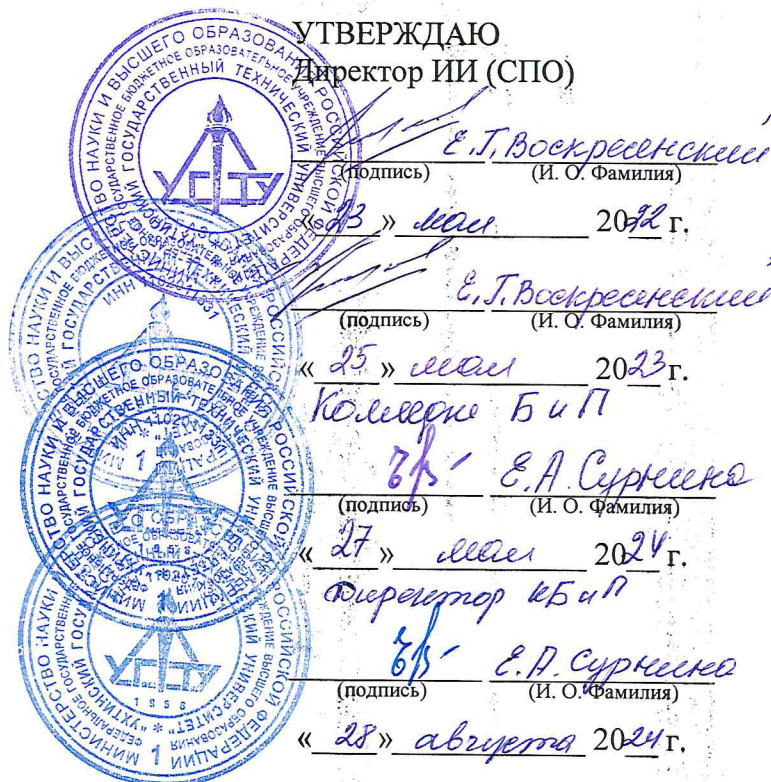 УТВЕРЖДАЮ
Директор ИИ (СПО)
Е.Г. Воскресенский
(подпись) (И. О. Фамилия)
«23» мая 2022 г.
Е.Г. Воскресенский
(подпись) (И. О. Фамилия)
«25» мая 2023 г.
БиП
Е.А. Сурнина
(подпись) (И. О. Фамилия)
«27» мая 2024 г.
Директор КБиП
Е.А. Сурнина
(подпись) (И. О. Фамилия)
«28» августа 2024 г.
МИНИСТЕРСТВО НАУКИ И ВЫСШЕГО ОБРАЗОВАНИЯ РОССИЙСКОЙ ФЕДЕРАЦИИ
УХТИНСКИЙ ГОСУДАРСТВЕННЫЙ ТЕХНИЧЕСКИЙ УНИВЕРСИТЕТ
УГТУ
1958
1